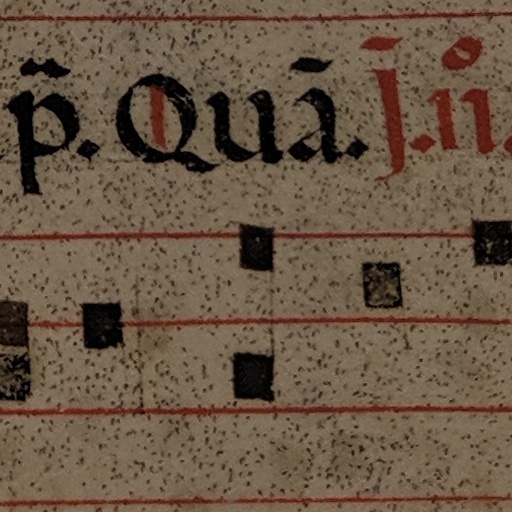 p̃. Quā. J̄. i̊i.